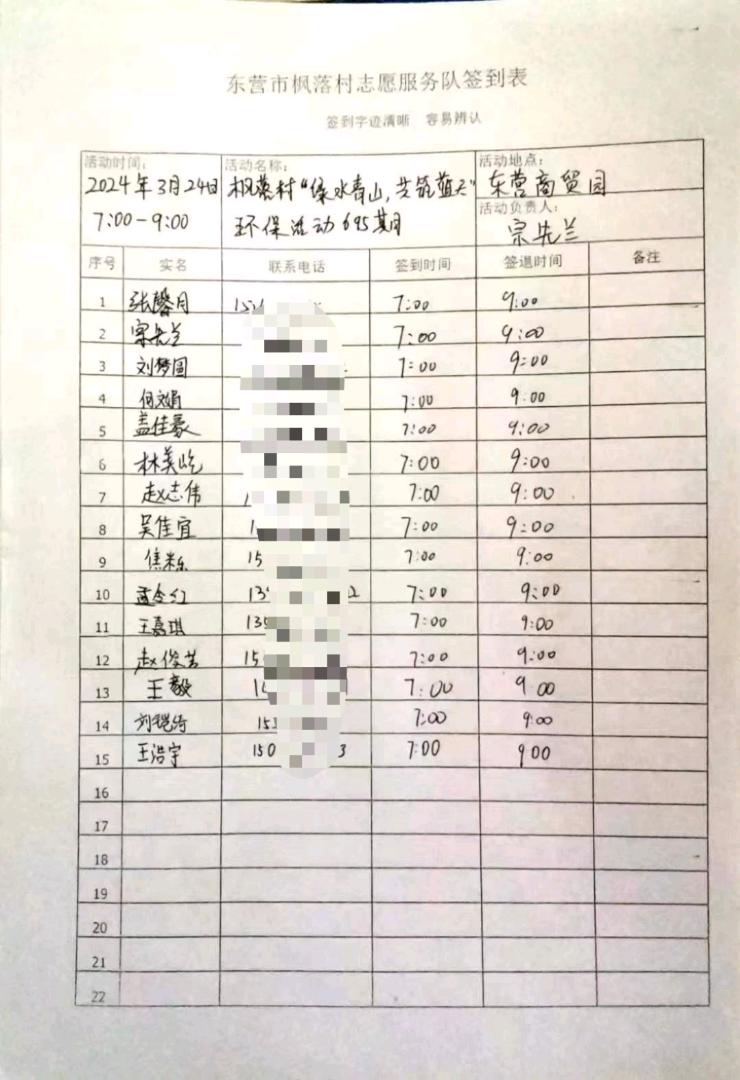 东营市枫落村志愿服务队签到表
签到字迹清晰 容易辨认
活动时间： 活动名称： 活动地点：
2024年3月24日 枫落村“绿水青山,共筑蓝天” 东营商贸园
7:00-9:00 环保活动695期 活动负责人：
宗先兰
序号 实名 联系电话 签到时间 签退时间 备注
1 张馨月 7:00 9:00
2 宗先兰 7:00 9:00
3 刘梦圆 7:00 9:00
4 何文娟 7:00 9:00
5 盖佳豪 7:00 9:00
6 林美屹 7:00 9:00
7 赵志伟 7:00 9:00
8 吴佳宜 7:00 9:00
9 15 7:00 9:00
10 13 2 7:00 9:00
11 王嘉琪 13 7:00 9:00
12 15 7:00 9:00
13 王毅 7:00 9 00
14 15 7:00 9:00
15 王浩宇 150 3 7:00 9:00
16
17
18
19
20
21
22